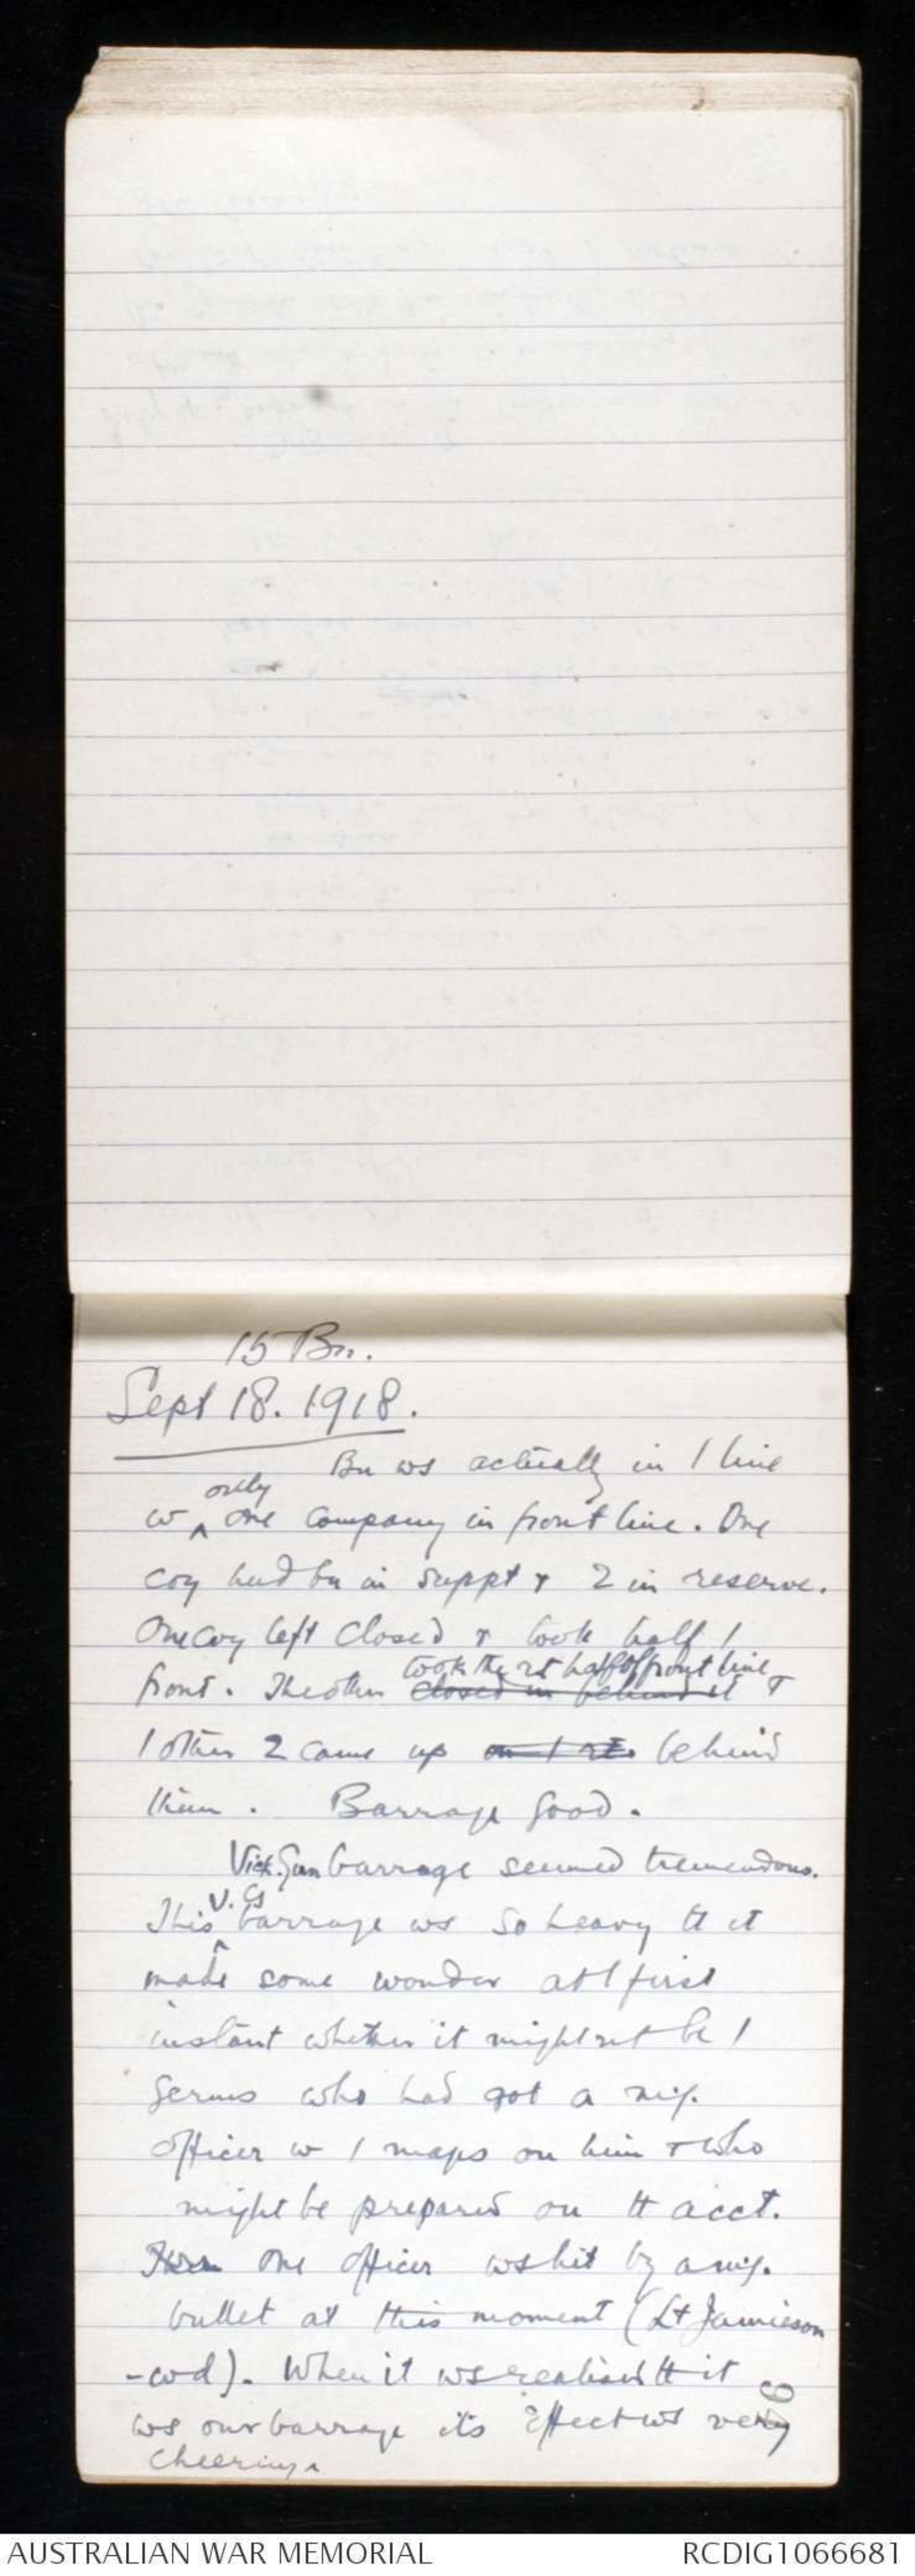 15 Bn.
Sept 18. 1918.
Bn ws actually in / line
w only one company in front line. One
coy had bn in suppt & 2 in reserve.
One coy left closed & took half /
front. The other took the rt half of front line closed in behind it &
/ other 2 came up on / rt. behind
them. Barrage good.
Vick. Gun barrage seemed tremendous.
This V. Gs barrage ws so heavy tt it
made some wonder at / first
instant whether it might not be /
Germs who had got a m.g.
officer w / maps on him & who
might be prepared on tt acct.
One officer ws hit by a m.g.
bullet at this moment (Lt Jamieson
-wd). When it ws realised tt it
ws our barrage its effect ws very
cheering.
6
AUSTRALIAN WAR MEMORIAL
RCDIG1066681